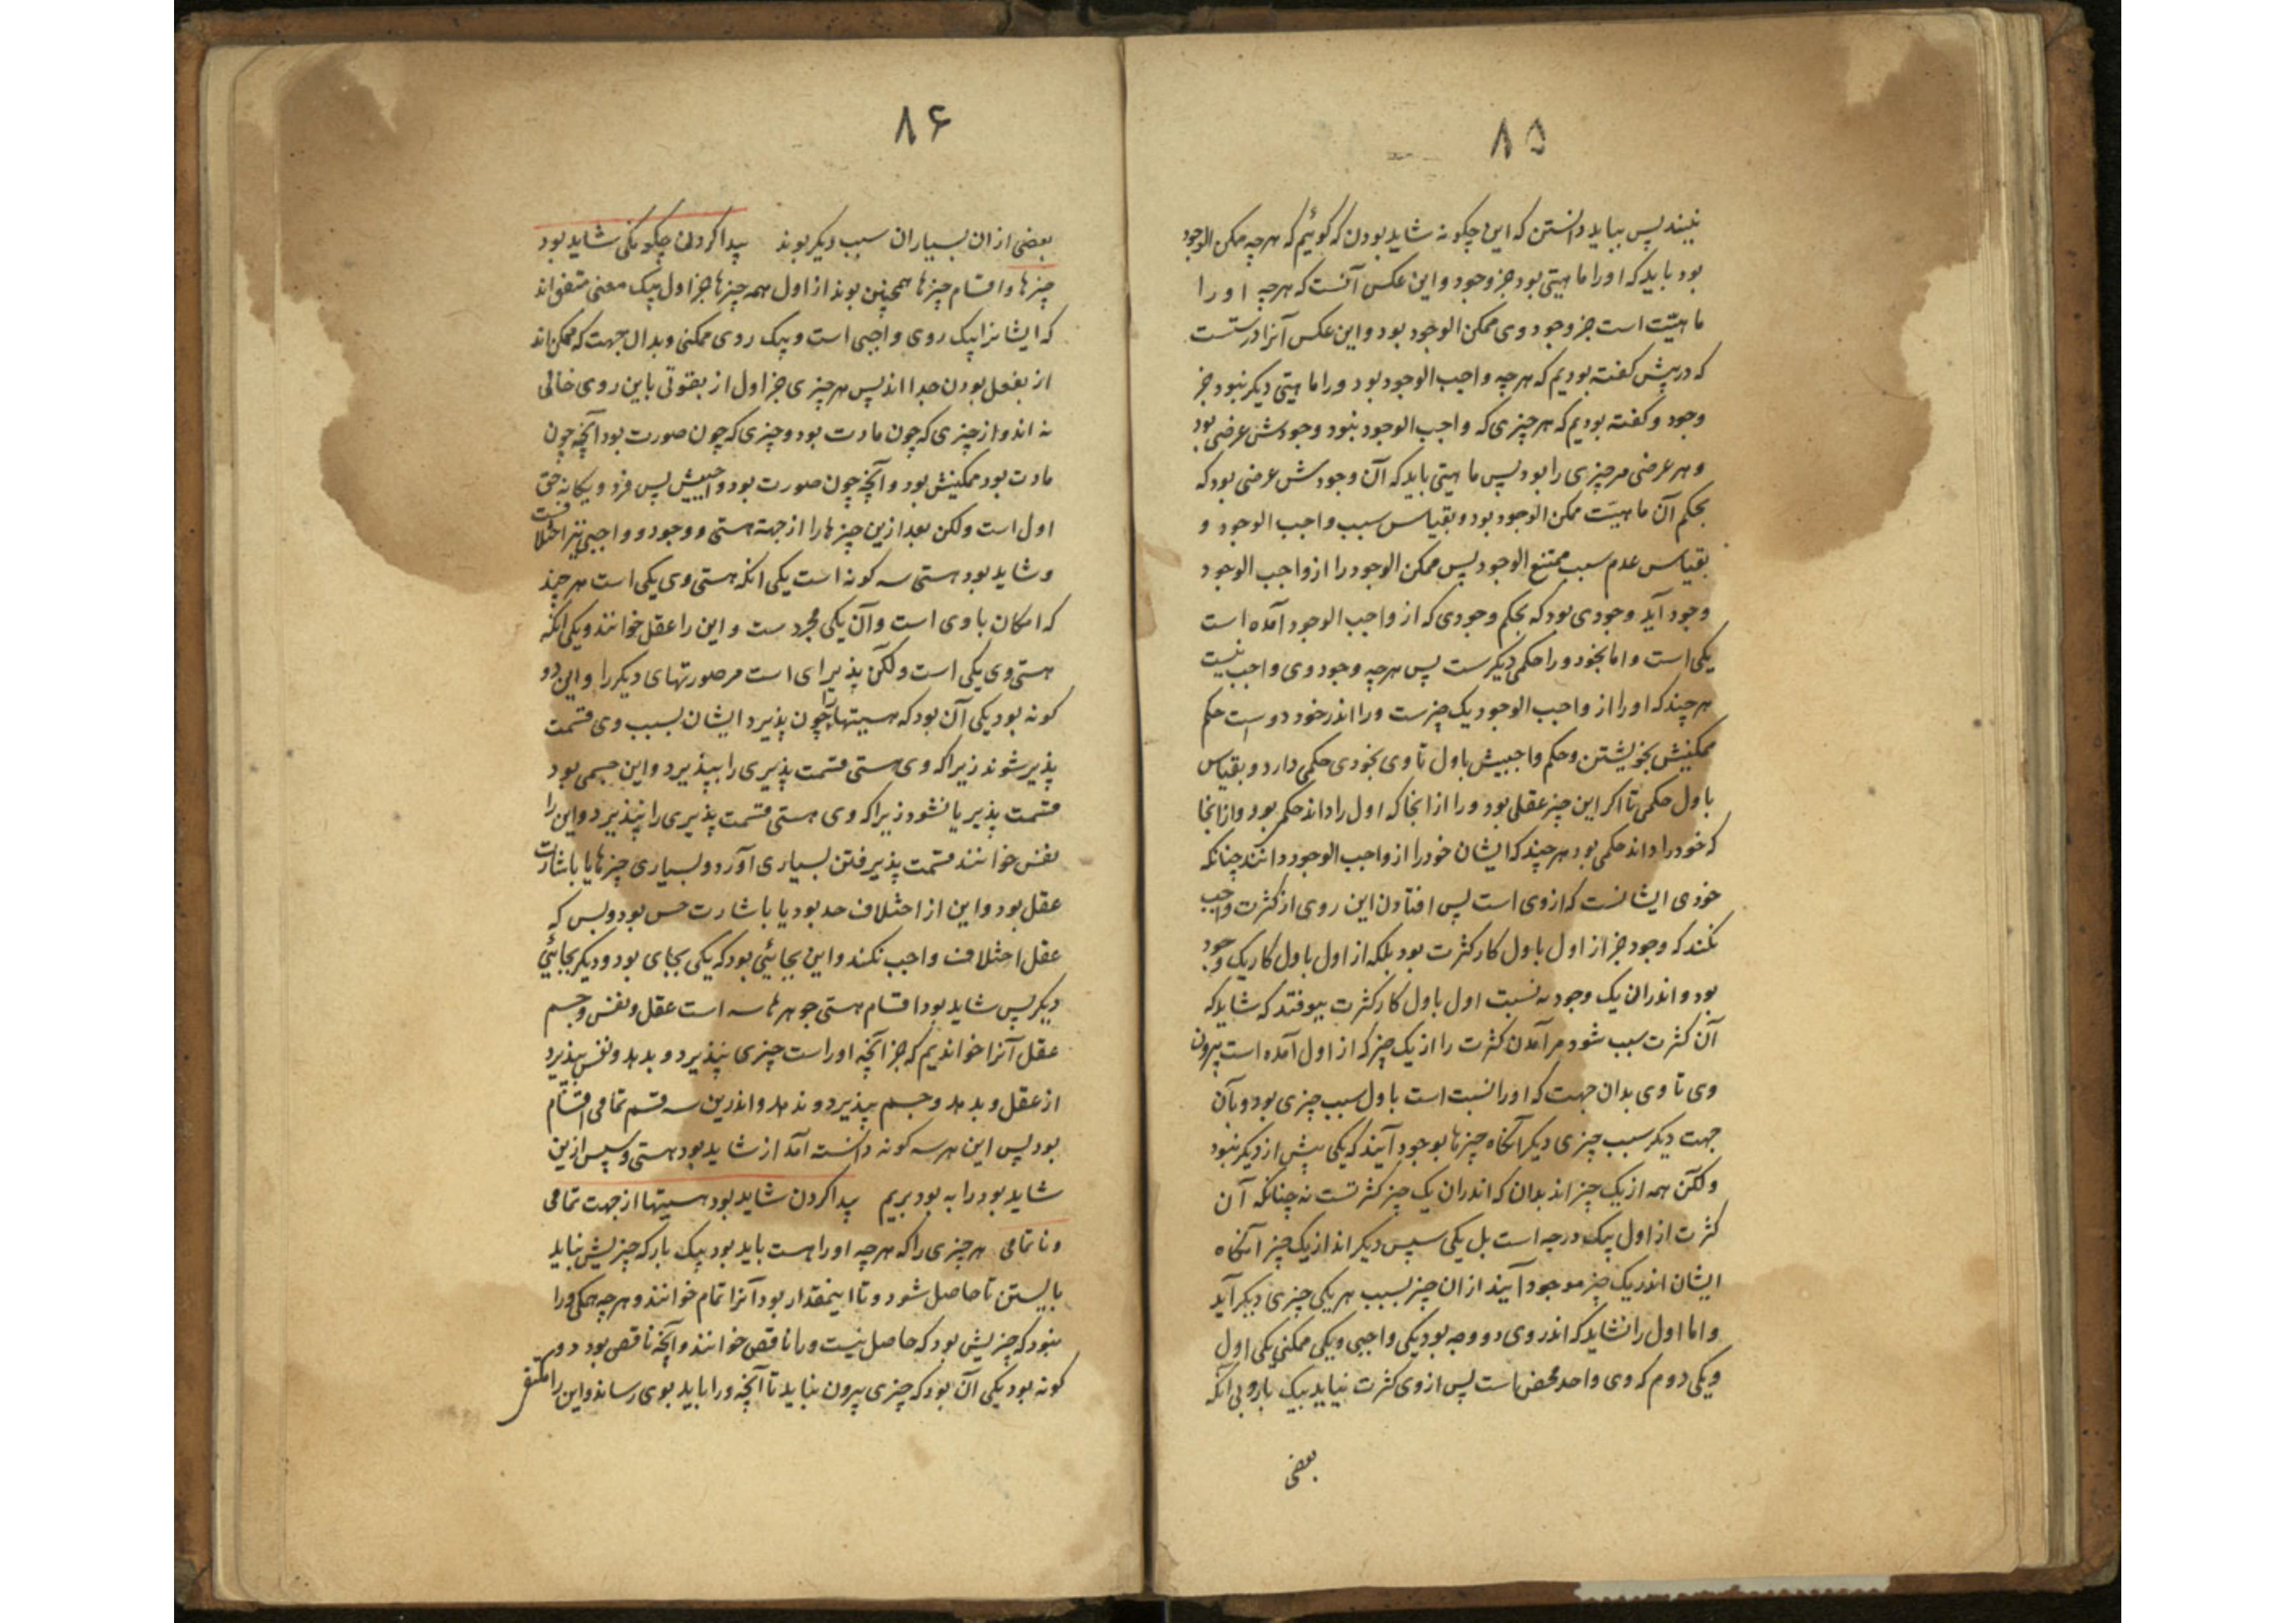 ۸۵
نبیند پس بباید دانستن که این چگونه شاید بودن که گوئیم که هرچه ممکن الوجود
بود باید که او را ماهیتی بود جز وجود و این عکس آنست که هرچه او را
ماهیّت است جز وجود وی ممکن الوجود بود و این عکس آنرا درستست
که در پیش گفته بودیم که هرچه واجب الوجود بود ورا ماهیتی دیگر نبود جز
وجود و گفته بودیم که هر چیزی که واجب الوجود نبود وجودش عرضی بود
و هر عرضی مر چیزی را بود پس ماهیتی باید که آن وجودش عرضی بود که
بحکم آن ماهیّت ممکن الوجود بود و بقیاس سبب واجب الوجود و
بقیاس عدم سبب ممتنع الوجود پس ممکن الوجود را از واجب الوجود
وجود آید وجودی بود که بحکم وجودی که از واجب الوجود آمده است
یکی است و اما بخود ورا حکمی دیگرست پس هرچه وجود وی واجب نیست
هر چند که او را از واجب الوجود یک چیزست ورا اندر خود دو است حکم
ممکنیش بخویشتن و حکم واجبیش باول تا وی بخودی حکمی دارد و بقیاس
باول حکمی تا اگر این چیز عقلی بود ورا از انجا که اول را داند حکمی بود و از انجا
که خود را داند حکمی بود هر چند که ایشان خود را از واجب الوجود دانند چنانکه
خودی ایشانست که از وی است پس افتادن این روی از کثرت واجب
نکند که وجود جز از اول باول کار کثرت بود بلکه از اول باول کار یک وجود
بود و اندران یک وجود نه نسبت اول باول کار کثرت بیوفتد که شاید که
آن کثرت سبب شود مر آمدن کثرت را از یک چیز که از اول آمده است بیرون
وی تا وی بدان جهت که او را نسبت است باول سبب چیزی بود و بآن
جهت دیگر سبب چیزی دیگر آنگاه چیزها بوجود آیند که یکی پیش از دیگر نبود
ولکن همه از یک چیز اند بدان که اندران یک چیز کثرتست نه چنانکه آن
کثرت از اول بیک درجه است بل یکی سپس دیگر اند از یک چیز آنگاه
ایشان اندر یک چیز موجود آیند ازان چیز بسبب هر یکی چیزی دیگر آید
و اما اول را نشاید که اندر وی دو وجه بود یکی واجبی و یکی ممکنی یکی اول
و یکی دوم که وی واحد محض است پس از وی کثرت نیاید بیک بار و بی آنکه
بعضی
۸۶
بعضی از ان بسیاران سبب دیگر بوند پیدا کردن چگونگی شاید بود
چیزها و اقسام چیزها همچنین بوند از اول همه چیزها جز اول بیک معنی متفق اند
که ایشانرا بیک روی واجبی است و بیک روی ممکنی و بدان جهت که ممکن اند
از بفعل بودن جدا اند پس هر چیزی جز اول از بقوتی باین روی خالی
نه اند و از چیزی که چون مادت بود و چیزی که چون صورت بود آنچه چون
مادت بود ممکنیش بود و آنچه چون صورت بود واجبیش پس فرد و یگانه حق
اول است ولکن بعد ازین چیزها را از جهة هستی و وجود و واجبی نیز اختلافست
و شاید بود هستی سه گونه است یکی انکه هستی وی یکی است هر چند
که امکان با وی است و آن یکی مجردست و این را عقل خوانند و یکی انکه
هستی وی یکی است ولکن پذیرای است مر صورتهای دیگر را و این دو
گونه بود یکی آن بود که هستیها را چون پذیرد ایشان بسبب وی قسمت
پذیر شوند زیرا که وی هستی قسمت پذیری را بپذیرد و این جسمی بود
قسمت پذیر یا نشود زیرا که وی هستی قسمت پذیری را نپذیرد و این را
نفس خوانند قسمت پذیرفتن بسیاری آورد و بسیاری چیزها یا باشارت
عقل بود و این از اختلاف حد بود یا باشارت حس بود و بس که
عقل اختلاف واجب نکند و این بجائیی بود که یکی بجای بود و دیگر بجائیی
دیگر پس شاید بود اقسام هستی جوهرها سه است عقل و نفس و جسم
عقل آنرا خواندیم که جز آنچه او راست چیزی نپذیرد و بدهد و نفس بپذیرد
از عقل و بدهد و جسم بپذیرد و ندهد و اندرین سه قسم تمامی اقسام
بود پس این هر سه گونه دانسته آمد از شاید بود هستی و سپس ازین
شاید بود را به بود بریم پیدا کردن شاید بود هستیها از جهت تمامی
و ناتمامی هر چیزی را که هرچه او را هست باید بود بیک بار که چیزیش نباید
بایستن تا حاصل شود و تا اینمقدار بود آنرا تمام خوانند و هرچه همگی ورا
نبود که چیزیش بود که حاصل نیست ورا ناقص خوانند و آنچه ناقص بود دو
گونه بود یکی آن بود که چیزی بیرون نباید تا آنچه ورا باید بوی رساند و این را مکتفی